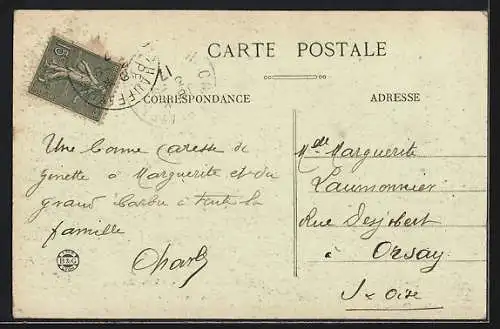 CARTE POSTALE
CORRESPONDANCE
ADRESSE
Une bonne caresse de
Ginette à Marguerite et du
grand Barbu à toute la
famille
Charly
Melle Marguerite
Laumonnier
Rue Desjobert
à Orsay
S x Oise
B & G